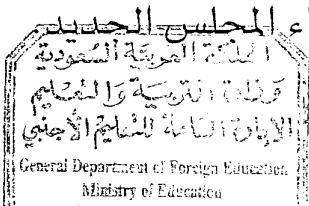 ء المجلس الجديد
المملكة العربية السعودية
وزارة التربية والتعليم
الإدارة العامة للتعليم الأجنبي
General Department of Foreign Education
Ministry of Education